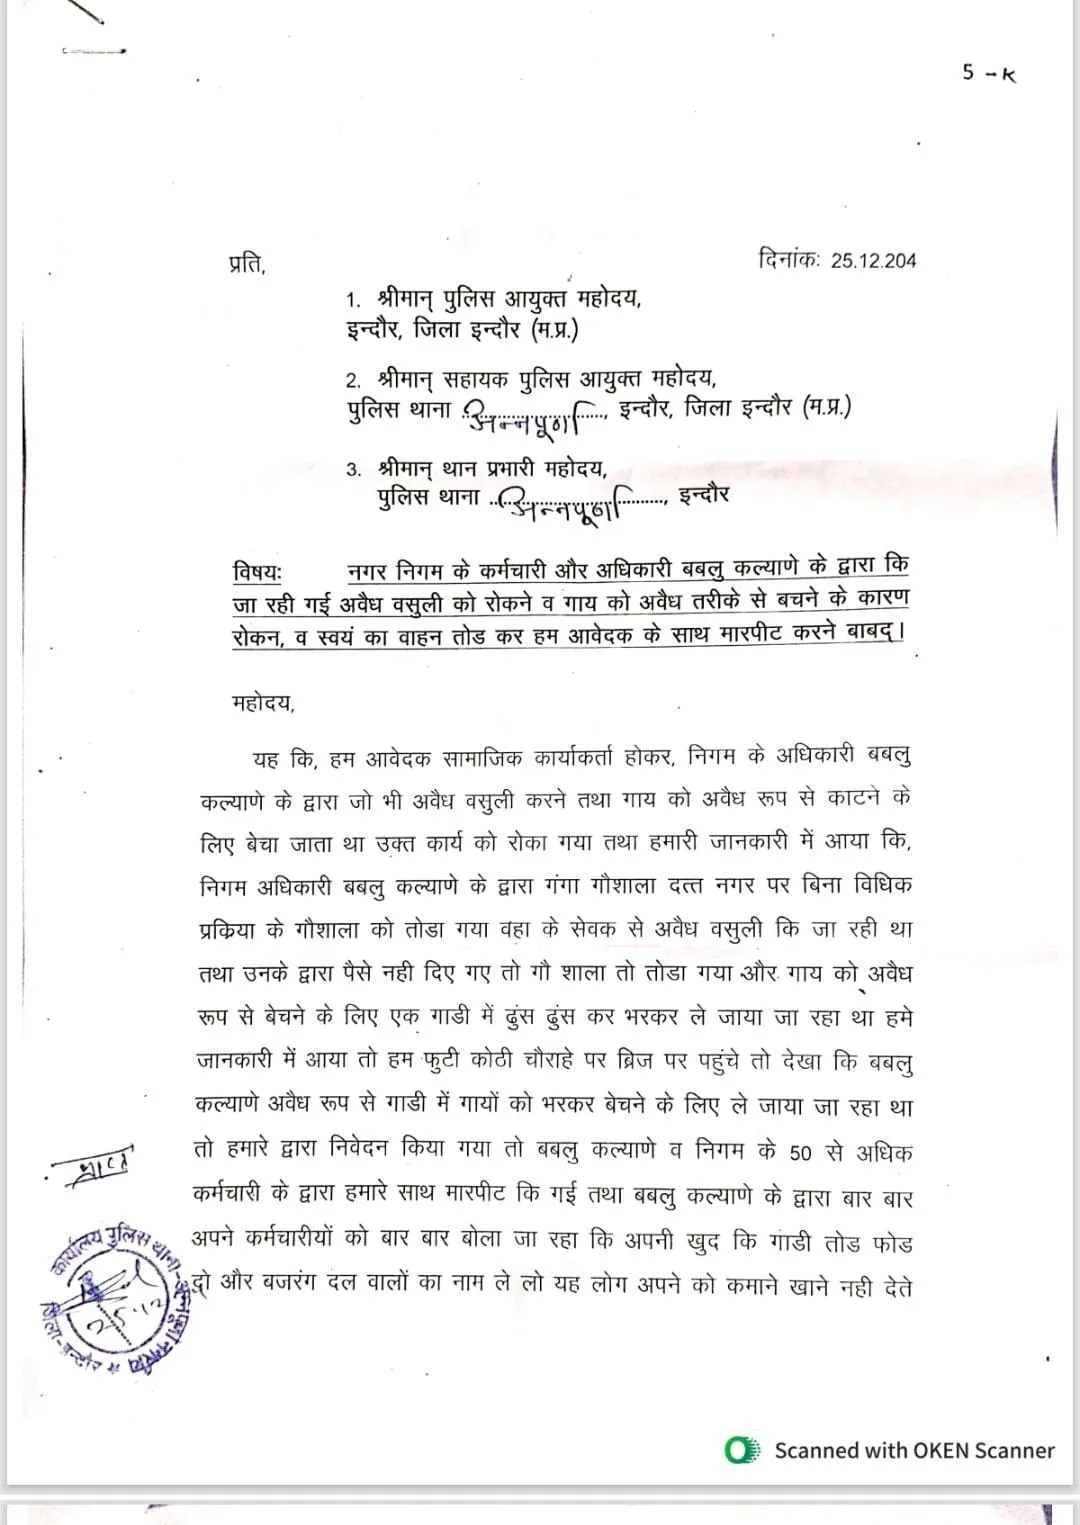 5 - K
प्रति,
दिनांकः 25.12.204
1. श्रीमान् पुलिस आयुक्त महोदय,
इन्दौर, जिला इन्दौर (म.प्र.)
2. श्रीमान् सहायक पुलिस आयुक्त महोदय,
पुलिस थाना अन्नपूर्णा, इन्दौर, जिला इन्दौर (म.प्र.)
3. श्रीमान् थान प्रभारी महोदय,
पुलिस थाना अन्नपूर्णा, इन्दौर
विषयः नगर निगम के कर्मचारी और अधिकारी बबलु कल्याणे के द्वारा कि
जा रही गई अवैध वसुली को रोकने व गाय को अवैध तरीके से बचने के कारण
रोकन, व स्वयं का वाहन तोड कर हम आवेदक के साथ मारपीट करने बाबद्।
महोदय,
यह कि, हम आवेदक सामाजिक कार्याकर्ता होकर, निगम के अधिकारी बबलु
कल्याणे के द्वारा जो भी अवैध वसुली करने तथा गाय को अवैध रूप से काटने के
लिए बेचा जाता था उक्त कार्य को रोका गया तथा हमारी जानकारी में आया कि,
निगम अधिकारी बबलु कल्याणे के द्वारा गंगा गौशाला दत्त नगर पर बिना विधिक
प्रकिया के गौशाला को तोडा गया वहा के सेवक से अवैध वसुली कि जा रही था
तथा उनके द्वारा पैसे नही दिए गए तो गौ शाला तो तोडा गया और गाय को अवैध
रूप से बेचने के लिए एक गाडी में ढुंस ढुंस कर भरकर ले जाया जा रहा था हमे
जानकारी में आया तो हम फुटी कोठी चौराहे पर ब्रिज पर पहुंचे तो देखा कि बबलु
कल्याणे अवैध रूप से गाडी में गायों को भरकर बेचने के लिए ले जाया जा रहा था
तो हमारे द्वारा निवेदन किया गया तो बबलु कल्याणे व निगम के 50 से अधिक
कर्मचारी के द्वारा हमारे साथ मारपीट कि गई तथा बबलु कल्याणे के द्वारा बार बार
अपने कर्मचारीयों को बार बार बोला जा रहा कि अपनी खुद कि गाडी तोड फोड
दो और बजरंग दल वालों का नाम ले लो यह लोग अपने को कमाने खाने नही देते
कार्यालय पुलिस थाना
25.12
Scanned with OKEN Scanner